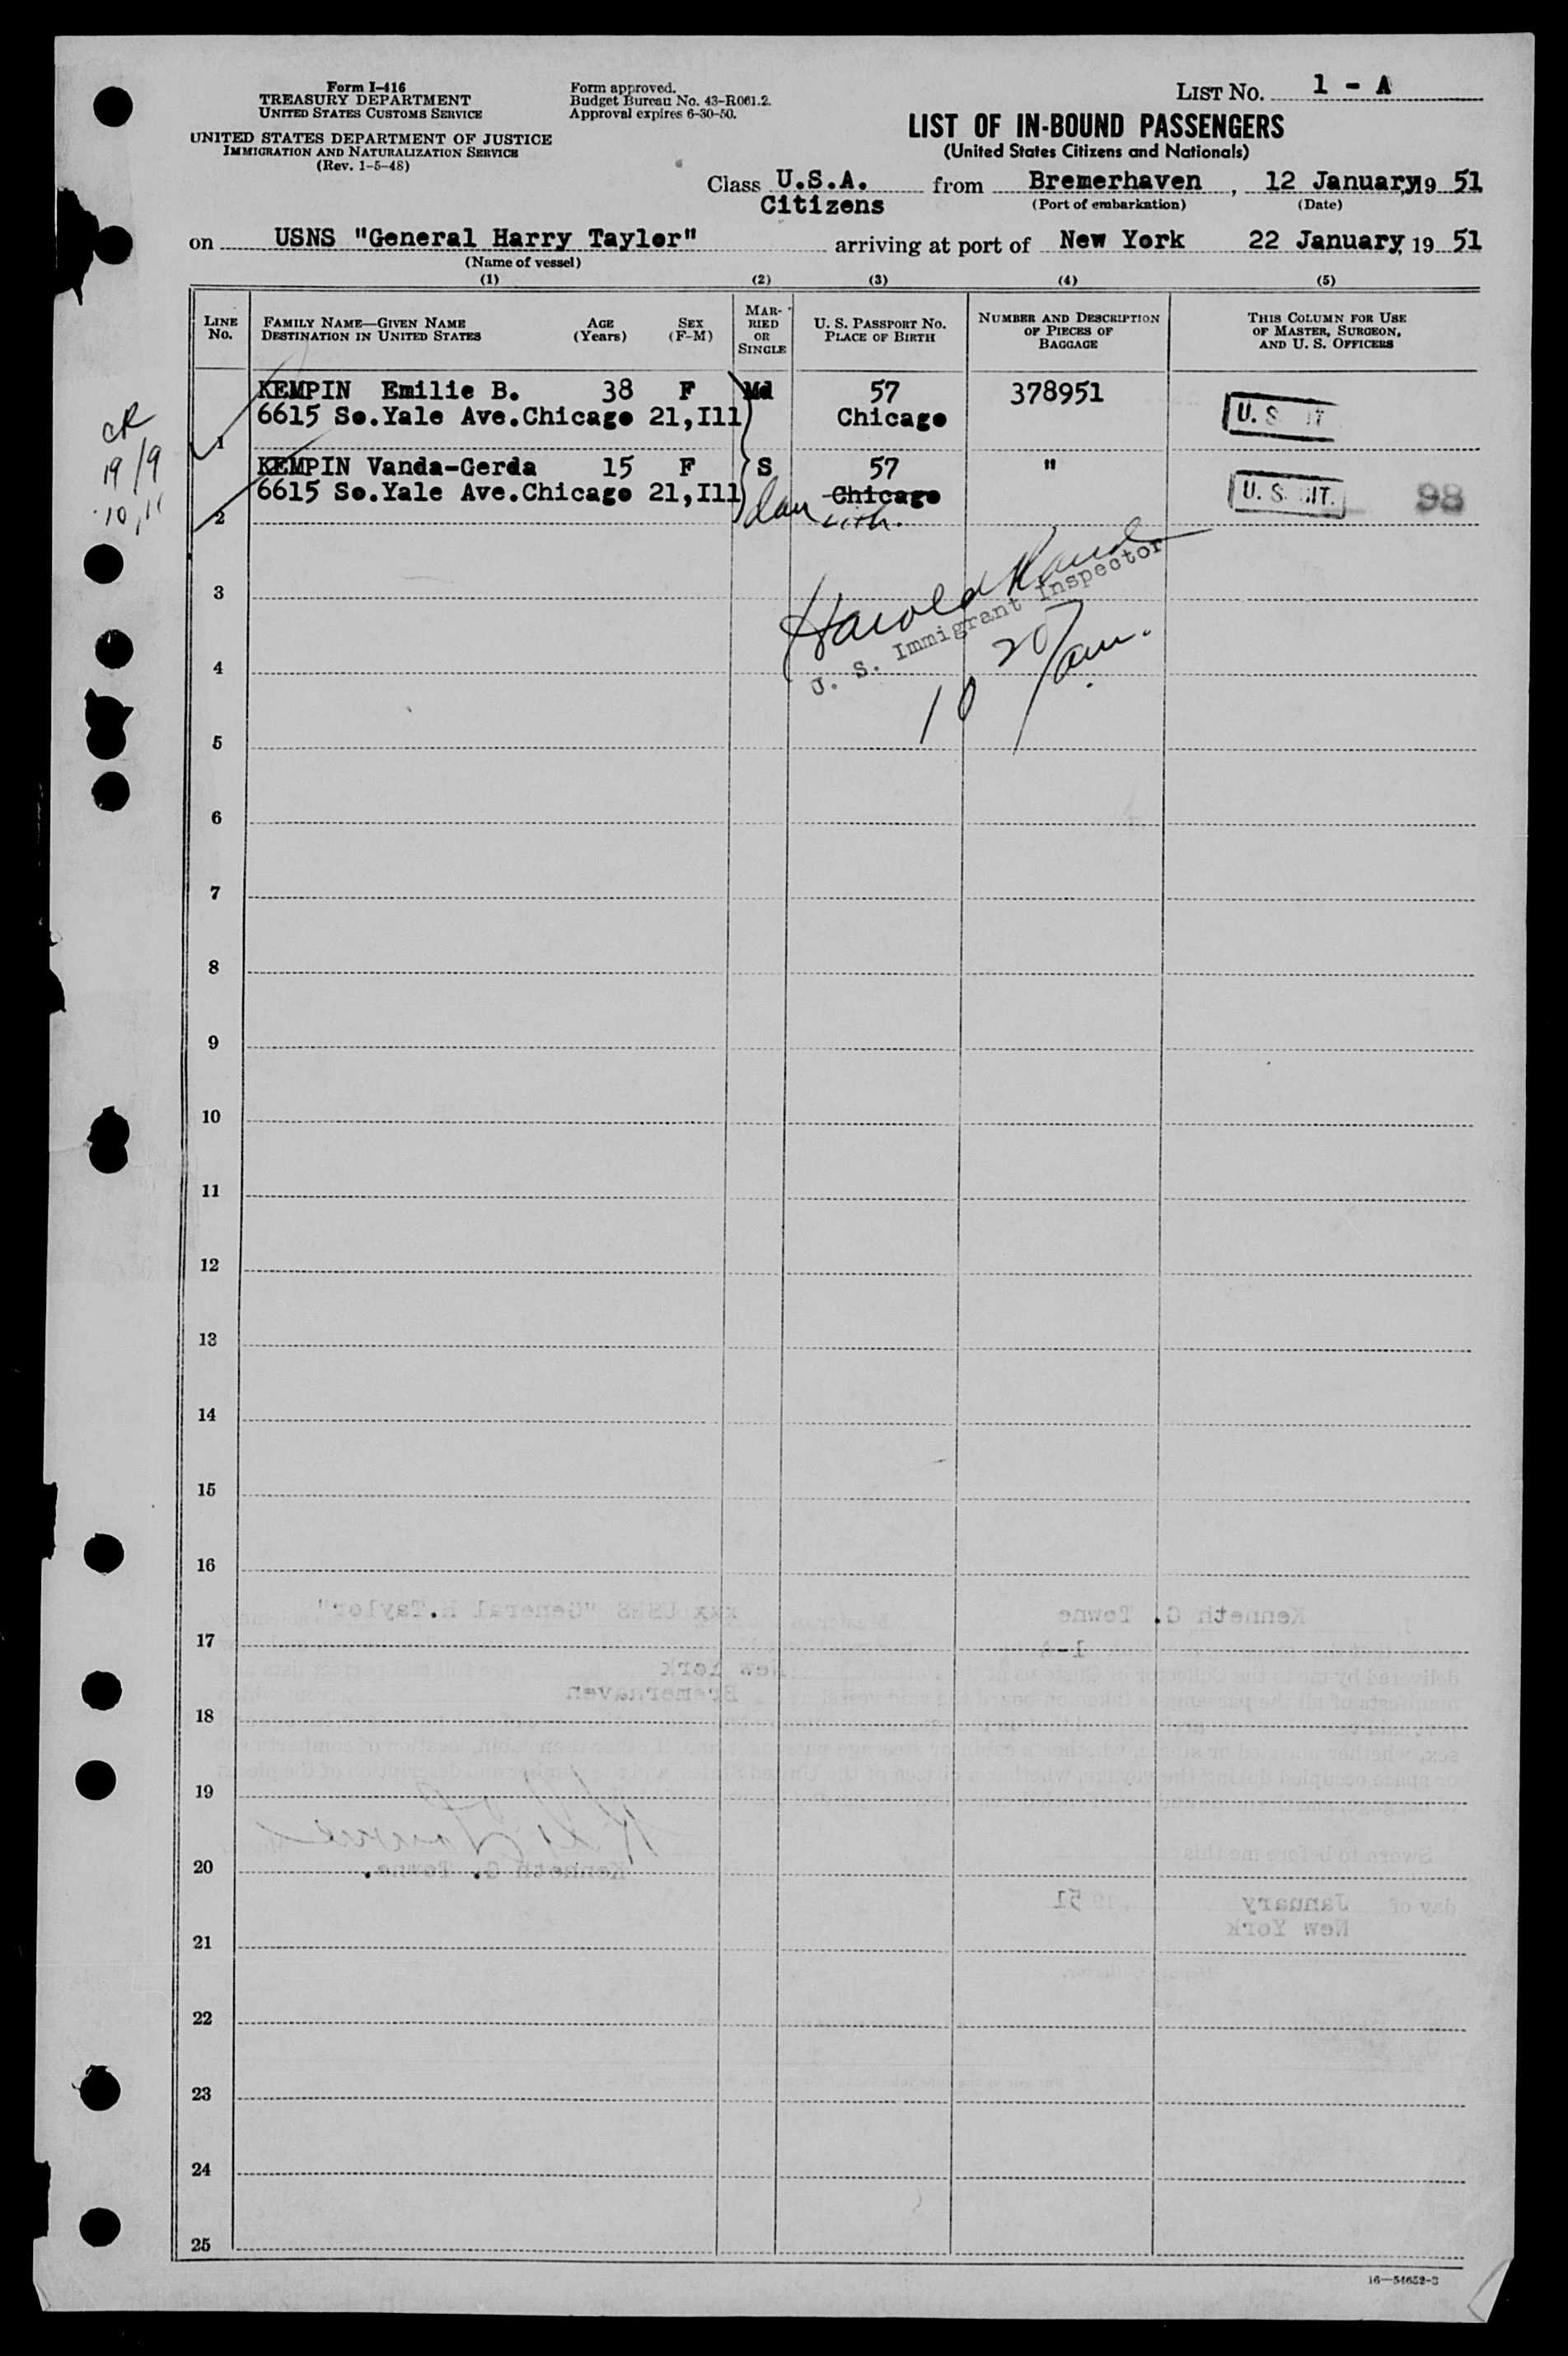 Form I-416
TREASURY DEPARTMENT
UNITED STATES CUSTOMS SERVICE
UNITED STATES DEPARTMENT OF JUSTICE
IMMIGRATION AND NATURALIZATION SERVICE
(Rev. 1-5-48)
Form approved.
Budget Bureau No. 43-R061.2.
Approval expires 6-30-50.
LIST NO. 1 - A
LIST OF IN-BOUND PASSENGERS
(United States Citizens and Nationals)
Class U.S.A. from Bremerhaven, 12 January, 19 51
Citizens (Port of embarkation) (Date)
on USNS "General Harry Taylor" arriving at port of New York 22 January, 19 51
(Name of vessel)
(1) (2) (3) (4) (5)
LINE No.
FAMILY NAME—GIVEN NAME
DESTINATION IN UNITED STATES
AGE (Years)
SEX (F-M)
MARRIED OR SINGLE
U. S. PASSPORT NO.
PLACE OF BIRTH
NUMBER AND DESCRIPTION OF PIECES OF BAGGAGE
THIS COLUMN FOR USE OF MASTER, SURGEON, AND U. S. OFFICERS
KEMPIN Emilie B. 38 F Md 57 378951
6615 So.Yale Ave.Chicago 21,Ill Chicago
1
U. S.
KEMPIN Vanda-Gerda 15 F S 57 "
6615 So.Yale Ave.Chicago 21,Ill Chicago
2
U. S. 98
CR
19/9
10,11
Lith.
Harold
U. S. Immigrant Inspector
10 20/am.
3
4
5
6
7
8
9
10
11
12
13
14
15
16
xxx USNS "General H.Taylor" Kenneth G. Towne
17
1-A
New York
Bremerhaven
18
19
20
Kenneth G. Towne.
Sworn to before me this
day of January 1951
New York
21
22
23
24
25
16—54652-3